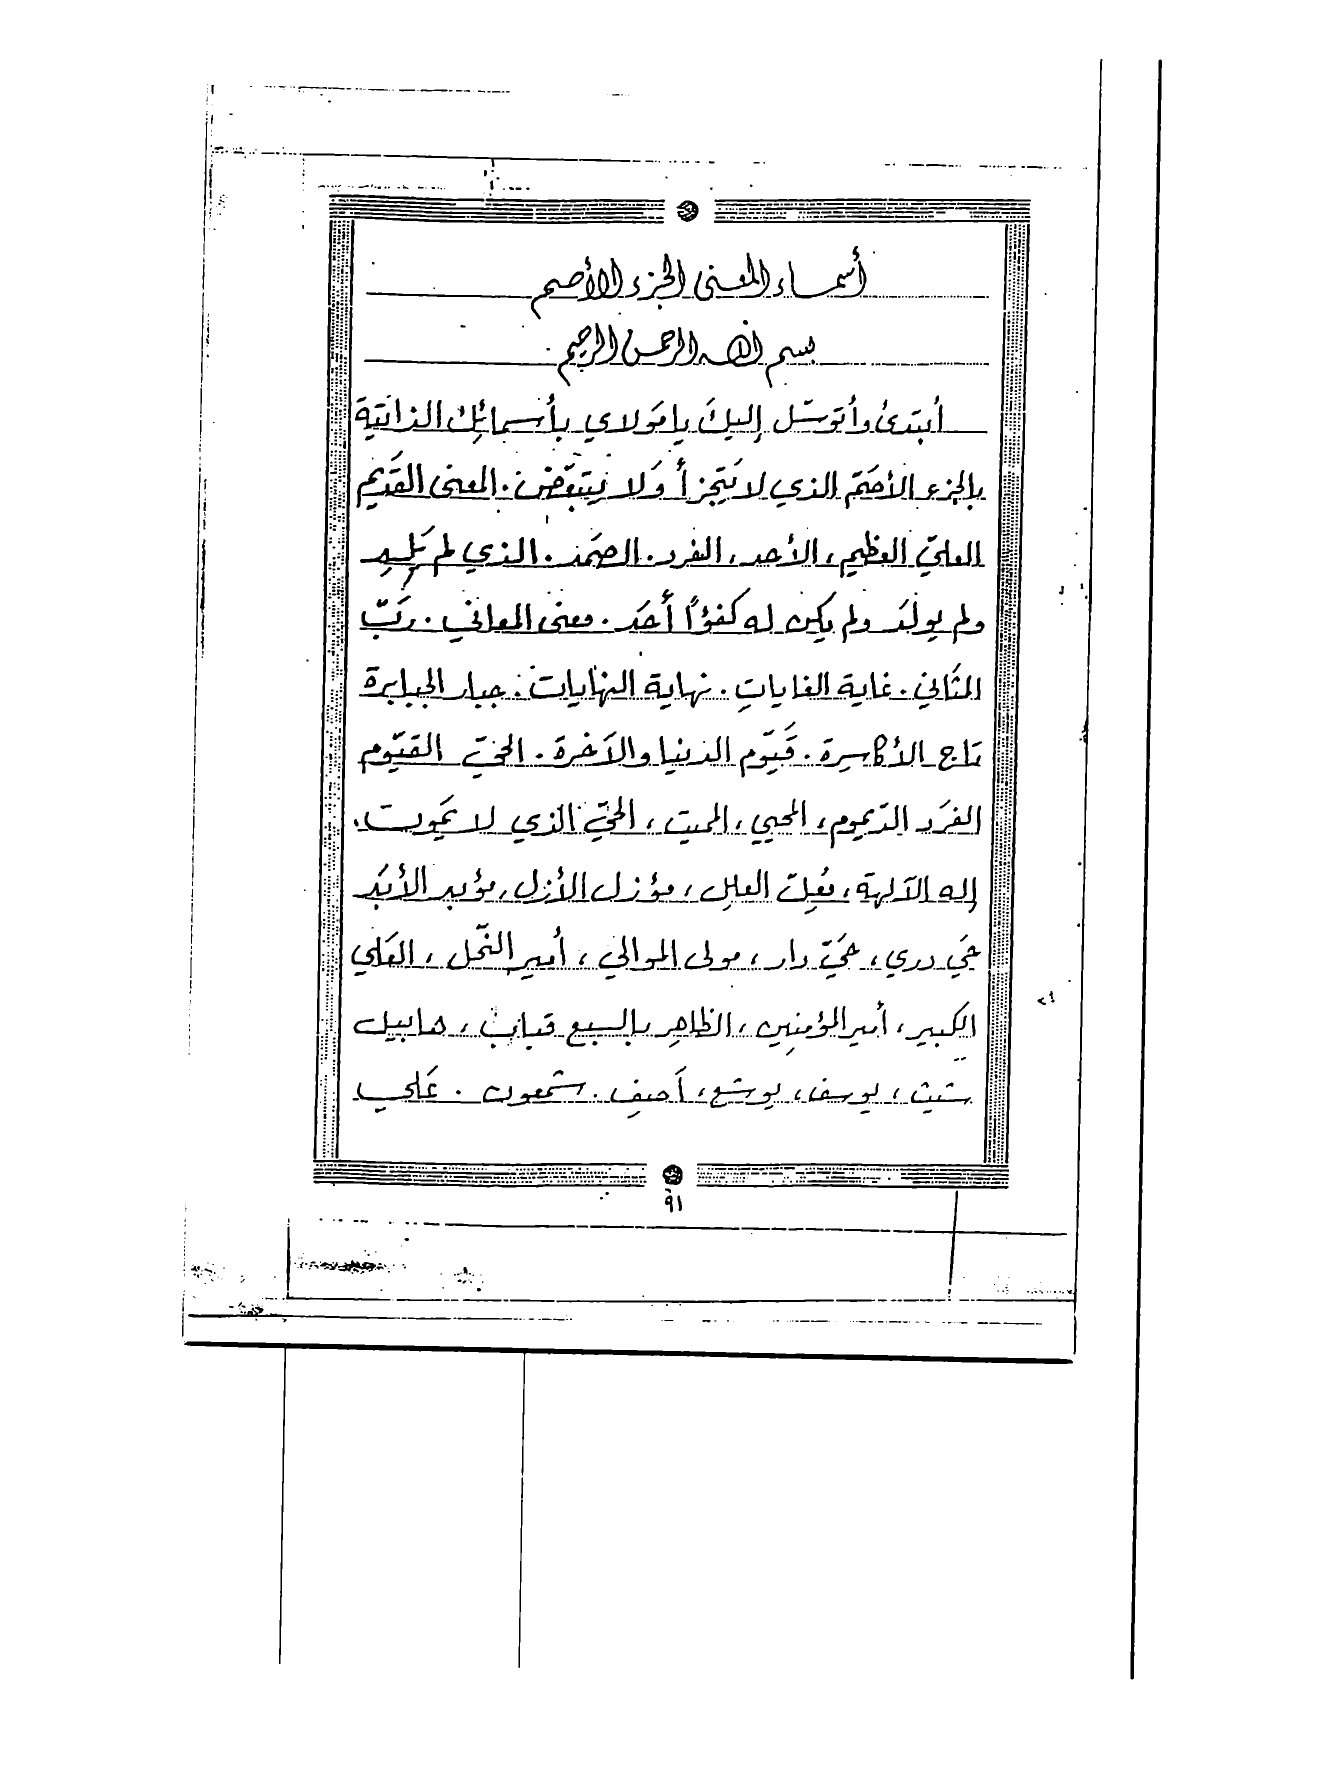 أسماء المعنى الجزء الأصم
بسم الله الرحمن الرحيم
أبتدئ وأتوسّل إليكَ يا مَولاي بأسمائك الذاتية
بالجزء الأصَمّ الذي لا يَتجزأ وَلا يتبعّض. المعنى القَديم
العليّ العظيم، الأحد، الفرد. الصمَد. الذي لم يَلِد
ولم يولَد ولم يكن له كفؤاً أحَد. معنى المعاني. رَبّ
المثَاني. غاية الغايات. نهاية النهايات. جبار الجبابرة
تاج الأكاسِرة. قَيّوم الدنيا والآخرة. الحيّ القيّوم
الفرَد الدّيموم، المحيي، المميت، الحيّ الذي لا يَموت.
إله الآلهة، مُعِلّ العلل، مؤزل الأزل، مؤبد الأبَد
حَي دري، حَيّ دار، مولى الموالي، أمير النّحل، العَلي
الكبير، أمير المؤمنِين، الظاهِر بالسبع قباب، هابيل
شيث، يوسف، يوشع، آصِف. شمعون. عَلي
٩١